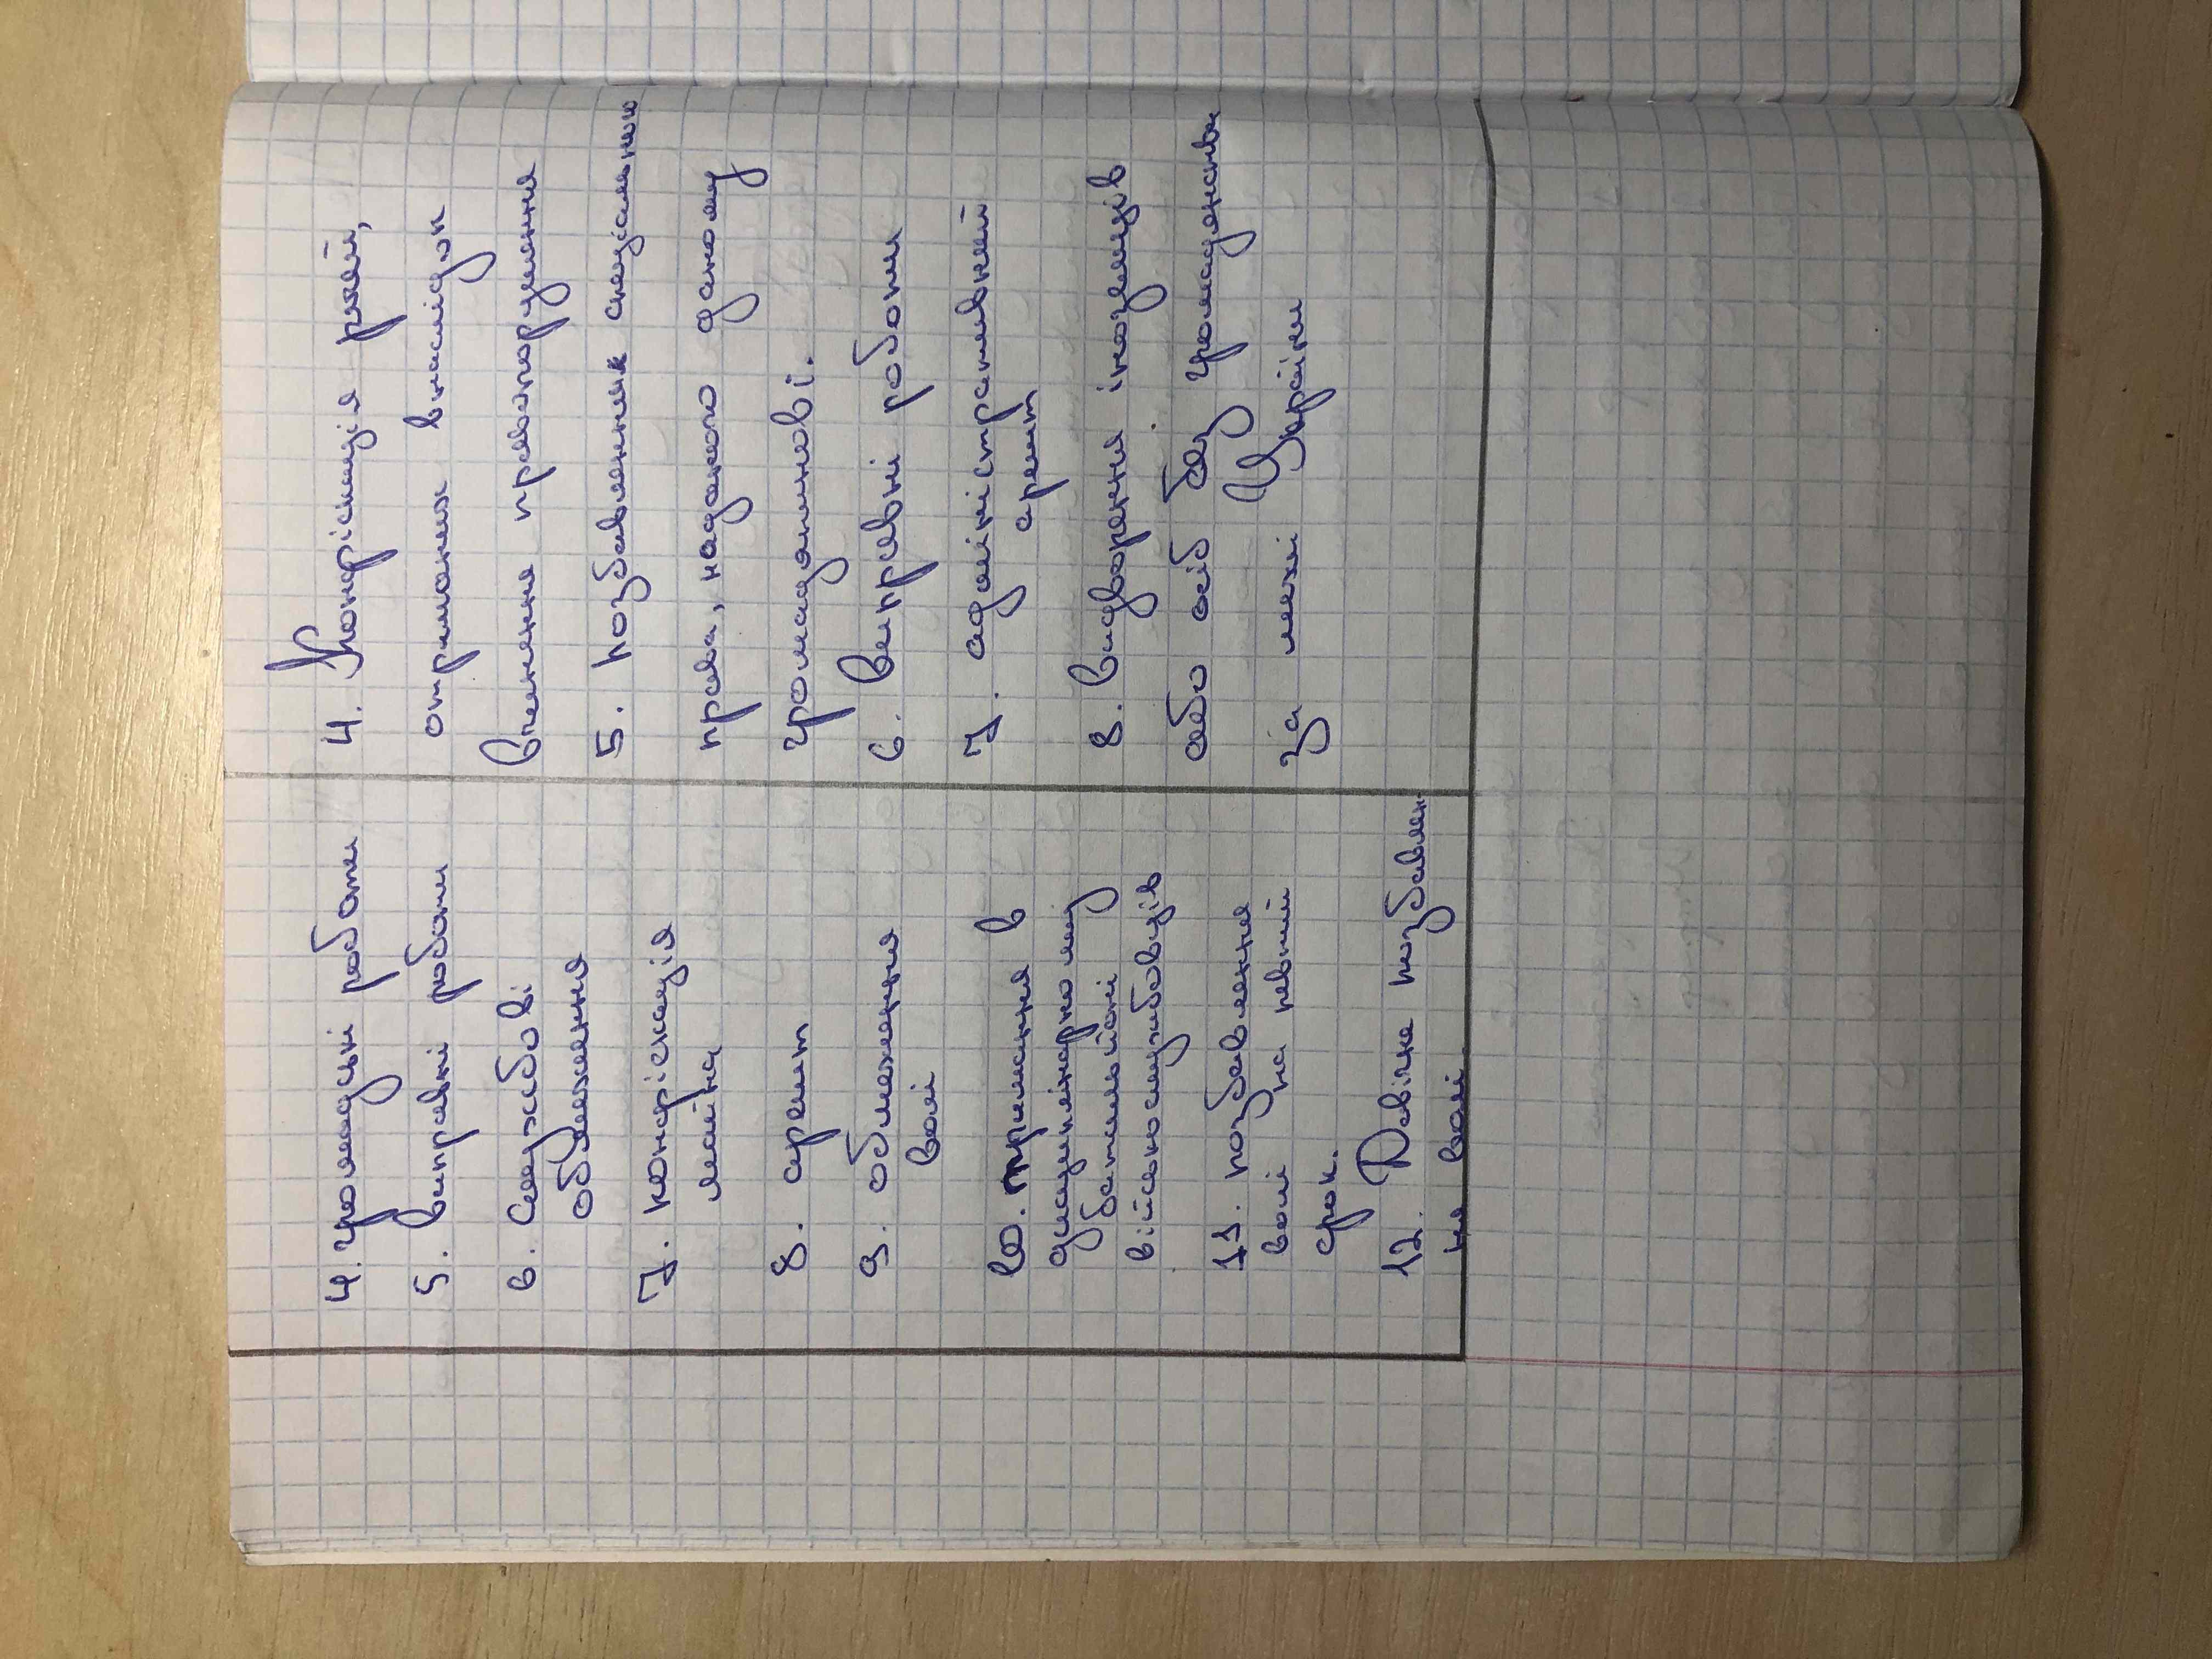 4. громадські роботи
5. виправні роботи
6. службові
обмеження
7. конфіскація
майна
8. арешт
9. обмеження
волі
10. тримання в
дисциплінарному
батальйоні
військослужбовців
11. позбавлення
волі на певний
срок.
12. Довічне позбавлен-
ня волі.
4. Конфіскація речей,
отриманих внаслідок
вчинення правопорушення
5. позбавлення спеціального
права, наданого даному
громадянинові.
6. виправні роботи
7. адміністративний
арешт
8. видворення іноземців
або осіб без громадянства
за межі України